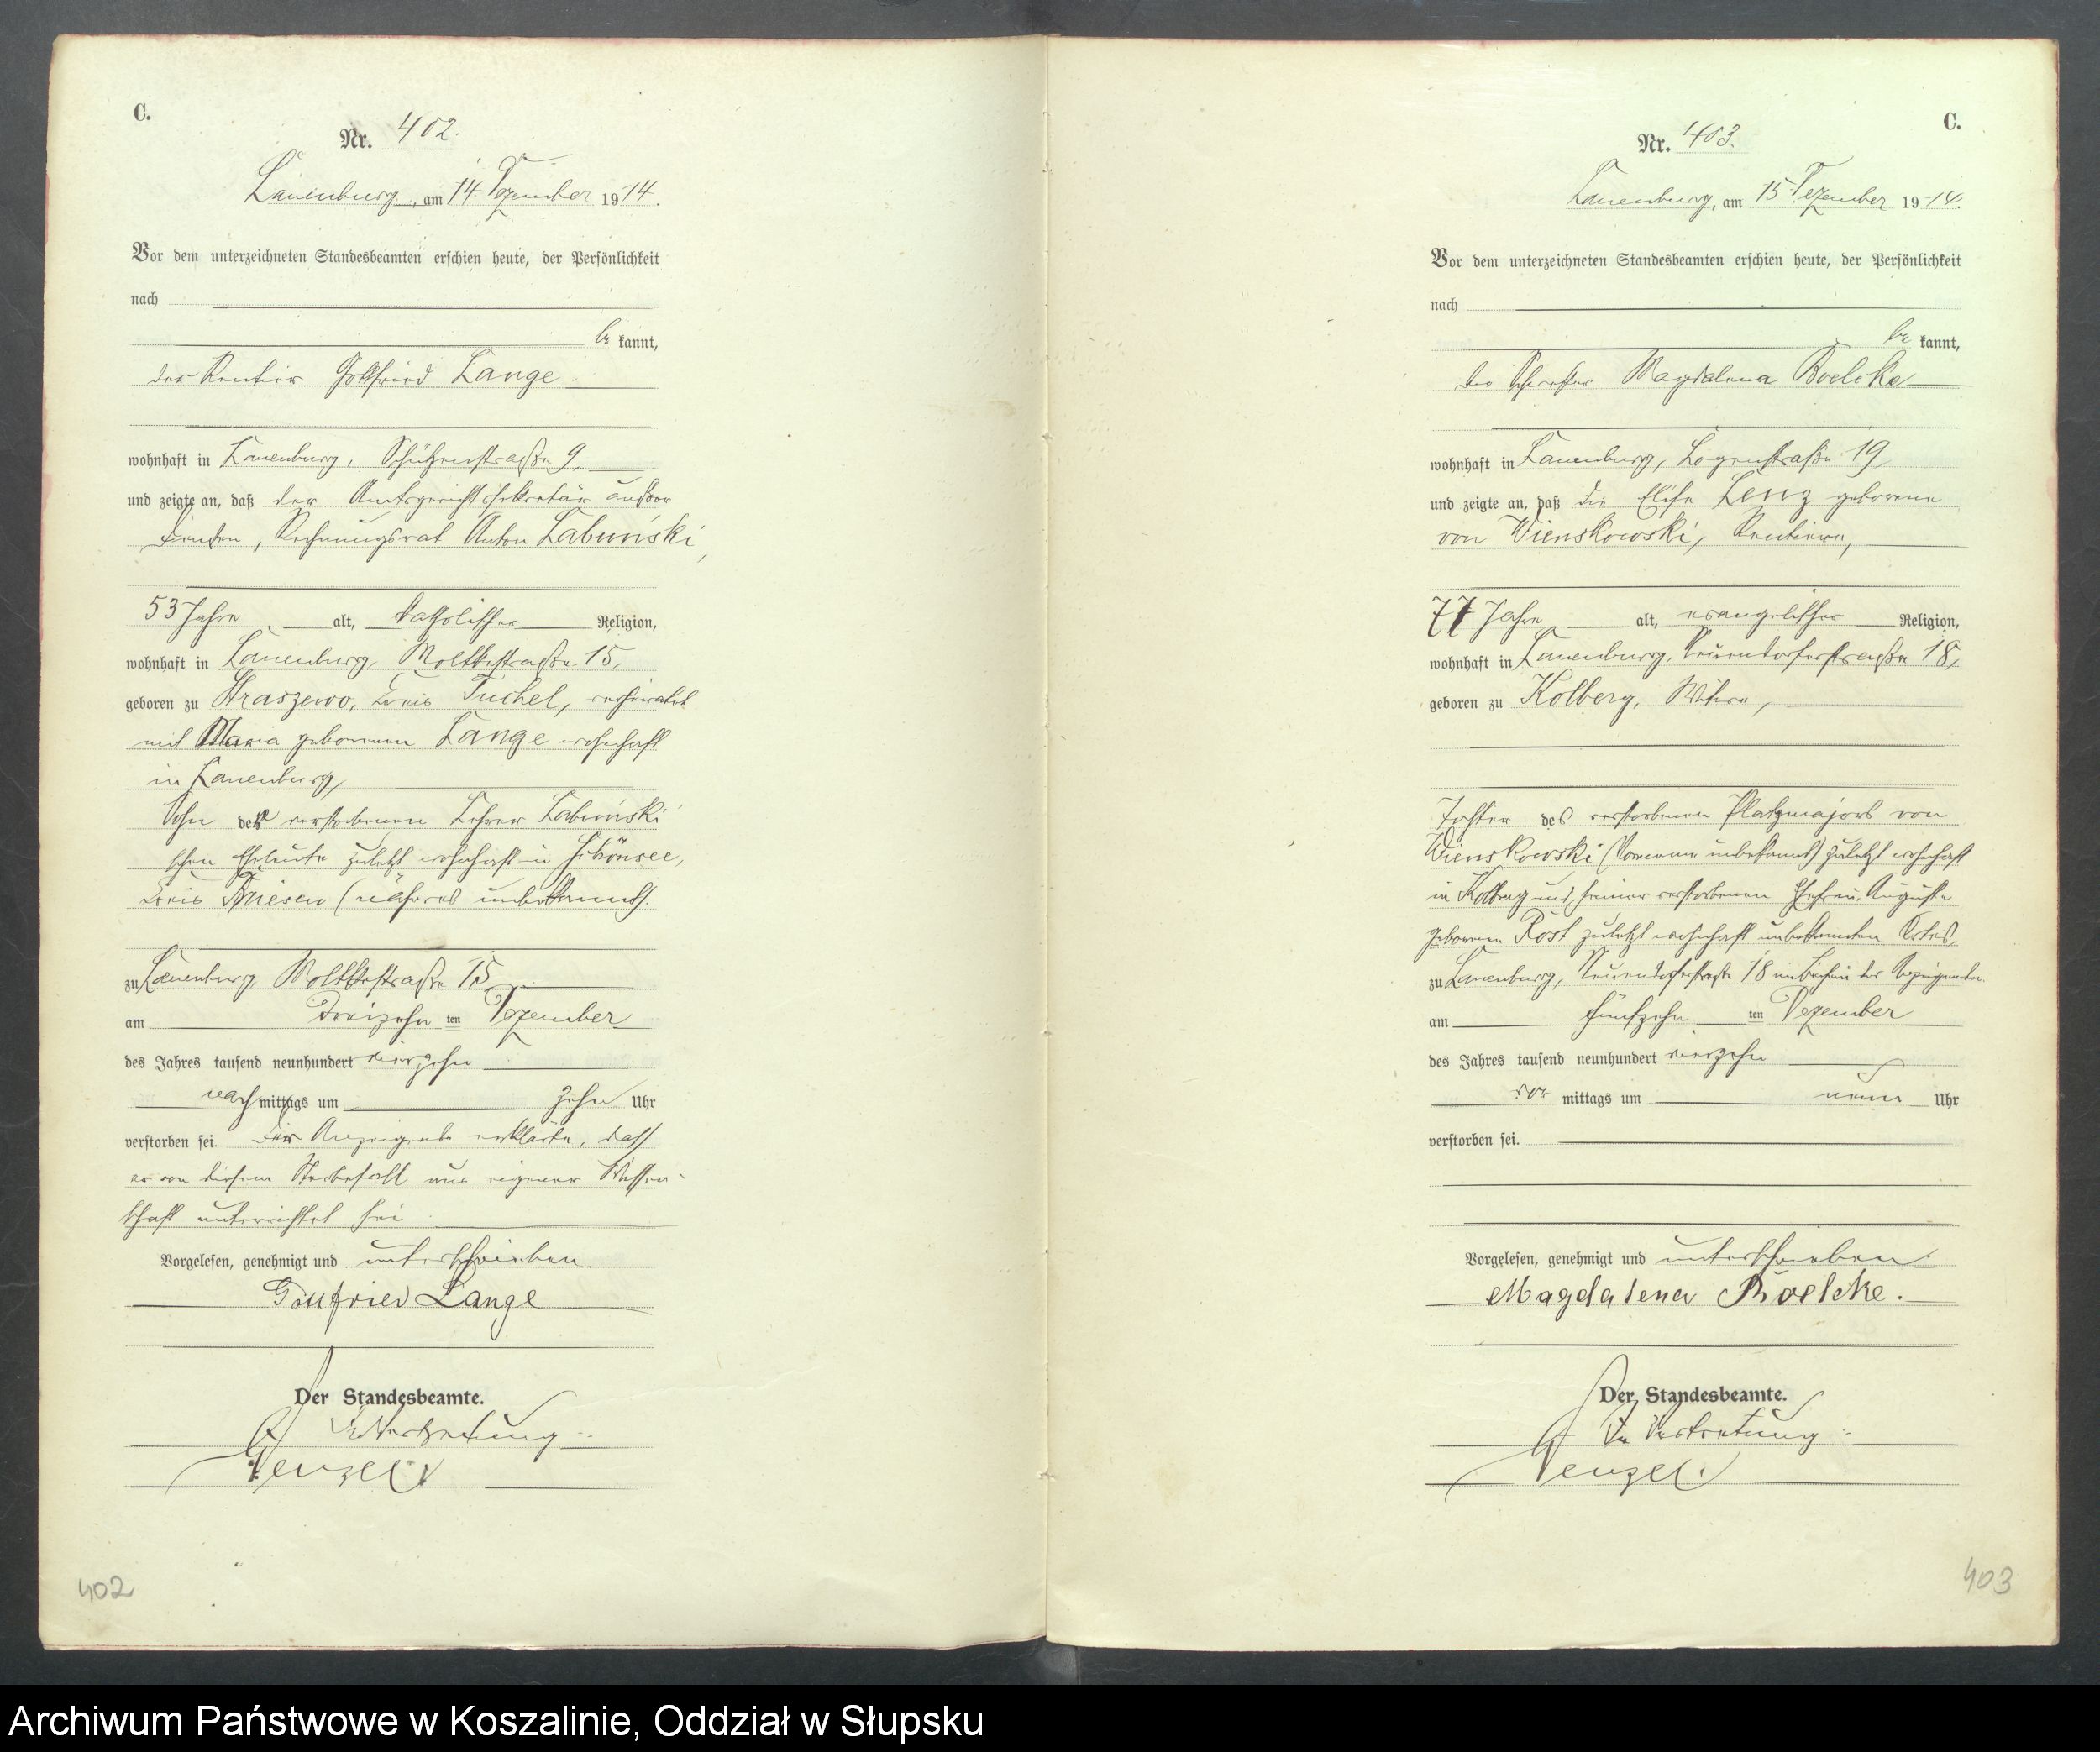 C.
Nr. 402.
Lauenburg, am 14. Dezember 1914.
Vor dem unterzeichneten Standesbeamten erschien heute, der Persönlichkeit
nach
be kannt,
der Rentier Gottfried Lange
wohnhaft in Lauenburg, Schützenstraße 9,
und zeigte an, daß der Amtsgerichtssekretär außer
Diensten, Rechnungsrat Anton Labuński,
53 Jahre alt, katholischer Religion,
wohnhaft in Lauenburg, Moltkestraße 15,
geboren zu Straszewo, Kreis Tuchel, verheiratet
mit Maria geborenen Lange wohnhaft
in Lauenburg,
Sohn der verstorbenen Lehrer Labuński
schen Eheleute zuletzt wohnhaft in Schönsee,
Kreis Briesen (näheres unbekannt).
zu Lauenburg, Moltkestraße 15,
am Dreizehn ten Dezember
des Jahres tausend neunhundert vierzehn
nach mittags um zehn Uhr
verstorben sei. Der Anzeigende erklärte, daß
er von diesem Sterbefall aus eigener Wissen-
schaft unterrichtet sei.
Vorgelesen, genehmigt und unterschrieben.
Gottfried Lange
Der Standesbeamte.
In Vertretung:
Wenzel
402
C.
Nr. 403.
Lauenburg, am 15. Dezember 1914.
Vor dem unterzeichneten Standesbeamten erschien heute, der Persönlichkeit
nach
be kannt,
die Schwester Magdalena Boelcke
wohnhaft in Lauenburg, Logenstraße 19,
und zeigte an, daß die Elise Lenz geborene
von Wienskowski, Rentiere,
77 Jahre alt, evangelischer Religion,
wohnhaft in Lauenburg, Neuendorferstraße 18,
geboren zu Kolberg, Witwe,
Tochter des verstorbenen Platzmajors von
Wienskowski (Vorname unbekannt) zuletzt wohnhaft
in Kolberg und seiner verstorbenen Ehefrau, Auguste
geborenen Rost zuletzt wohnhaft unbekannten Ortes,
zu Lauenburg, Neuendorferstraße 18 im Beisein der Anzeigenden
am fünfzehn ten Dezember
des Jahres tausend neunhundert vierzehn
vor mittags um neun Uhr
verstorben sei.
Vorgelesen, genehmigt und unterschrieben
Magdalena Boelcke.
Der Standesbeamte.
In Vertretung:
Wenzel.
403
Archiwum Państwowe w Koszalinie, Oddział w Słupsku